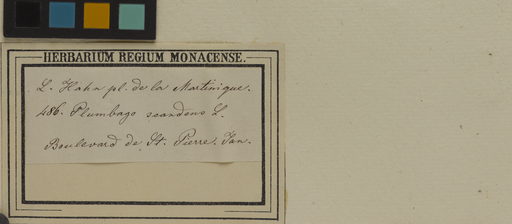 HERBARIUM REGIUM MONACENSE.
L. Hahn pl. de la Martinique.
486. Plumbago scandens L.
Boulevard de St. Pierre. Jan.